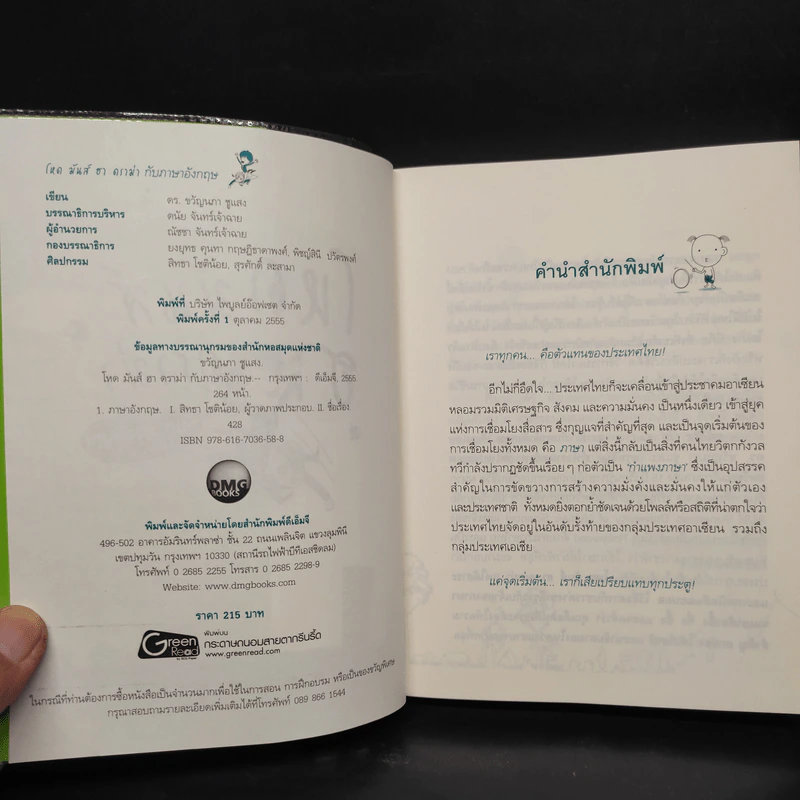 โหด มันส์ ฮา ดราม่า กับภาษาอังกฤษ
เขียน ดร. ขวัญนภา ชูแสง
บรรณาธิการบริหาร ดนัย จันทร์เจ้าฉาย
ผู้อำนวยการ ณัชชา จันทร์เจ้าฉาย
กองบรรณาธิการ ยงยุทธ คุนทา กฤษฎิธาดาพงศ์, พิชญ์สินี ปวัตรพงศ์
ศิลปกรรม สิทธา โชติน้อย, สุรศักดิ์ ละสามา
พิมพ์ที่ บริษัท ไพบูลย์อ๊อฟเซต จำกัด
พิมพ์ครั้งที่ 1 ตุลาคม 2555
ข้อมูลทางบรรณานุกรมของสำนักหอสมุดแห่งชาติ
ขวัญนภา ชูแสง.
โหด มันส์ ฮา ดราม่า กับภาษาอังกฤษ.-- กรุงเทพฯ : ดีเอ็มจี, 2555.
264 หน้า.
1. ภาษาอังกฤษ. I. สิทธา โชติน้อย, ผู้วาดภาพประกอบ. II. ชื่อเรื่อง.
428
ISBN 978-616-7036-58-8
DMG
BOOKS
พิมพ์และจัดจำหน่ายโดยสำนักพิมพ์ดีเอ็มจี
496-502 อาคารอัมรินทร์พลาซ่า ชั้น 22 ถนนเพลินจิต แขวงลุมพินี
เขตปทุมวัน กรุงเทพฯ 10330 (สถานีรถไฟฟ้าบีทีเอสชิดลม)
โทรศัพท์ 0 2685 2255 โทรสาร 0 2685 2298-9
Website: www.dmgbooks.com
ราคา 215 บาท
Green Read
พิมพ์บน
กระดาษถนอมสายตากรีนรี้ด
www.greenread.com
ในกรณีที่ท่านต้องการซื้อหนังสือเป็นจำนวนมากเพื่อใช้ในการสอน การฝึกอบรม หรือเป็นของขวัญพิเศษ
กรุณาสอบถามรายละเอียดเพิ่มเติมได้ที่โทรศัพท์ 089 866 1544
คำนำสำนักพิมพ์
เราทุกคน... คือตัวแทนของประเทศไทย!
อีกไม่กี่อึดใจ... ประเทศไทยก็จะเคลื่อนเข้าสู่ประชาคมอาเซียน
หลอมรวมมิติเศรษฐกิจ สังคม และความมั่นคง เป็นหนึ่งเดียว เข้าสู่ยุค
แห่งการเชื่อมโยงสื่อสาร ซึ่งกุญแจที่สำคัญที่สุด และเป็นจุดเริ่มต้นของ
การเชื่อมโยงทั้งหมด คือ ภาษา แต่สิ่งนี้กลับเป็นสิ่งที่คนไทยวิตกกังวล
ทวีกำลังปรากฏชัดขึ้นเรื่อยๆ ก่อตัวเป็น ‘กำแพงภาษา’ ซึ่งเป็นอุปสรรค
สำคัญในการขัดขวางการสร้างความมั่งคั่งและมั่นคงให้แก่ตัวเอง
และประเทศชาติ ทั้งหมดยิ่งตอกย้ำชัดเจนด้วยโพลล์หรือสถิติที่น่าตกใจว่า
ประเทศไทยจัดอยู่ในอันดับรั้งท้ายของกลุ่มประเทศอาเซียน รวมถึง
กลุ่มประเทศเอเชีย
แค่จุดเริ่มต้น... เราก็เสียเปรียบแทบทุกประตู!